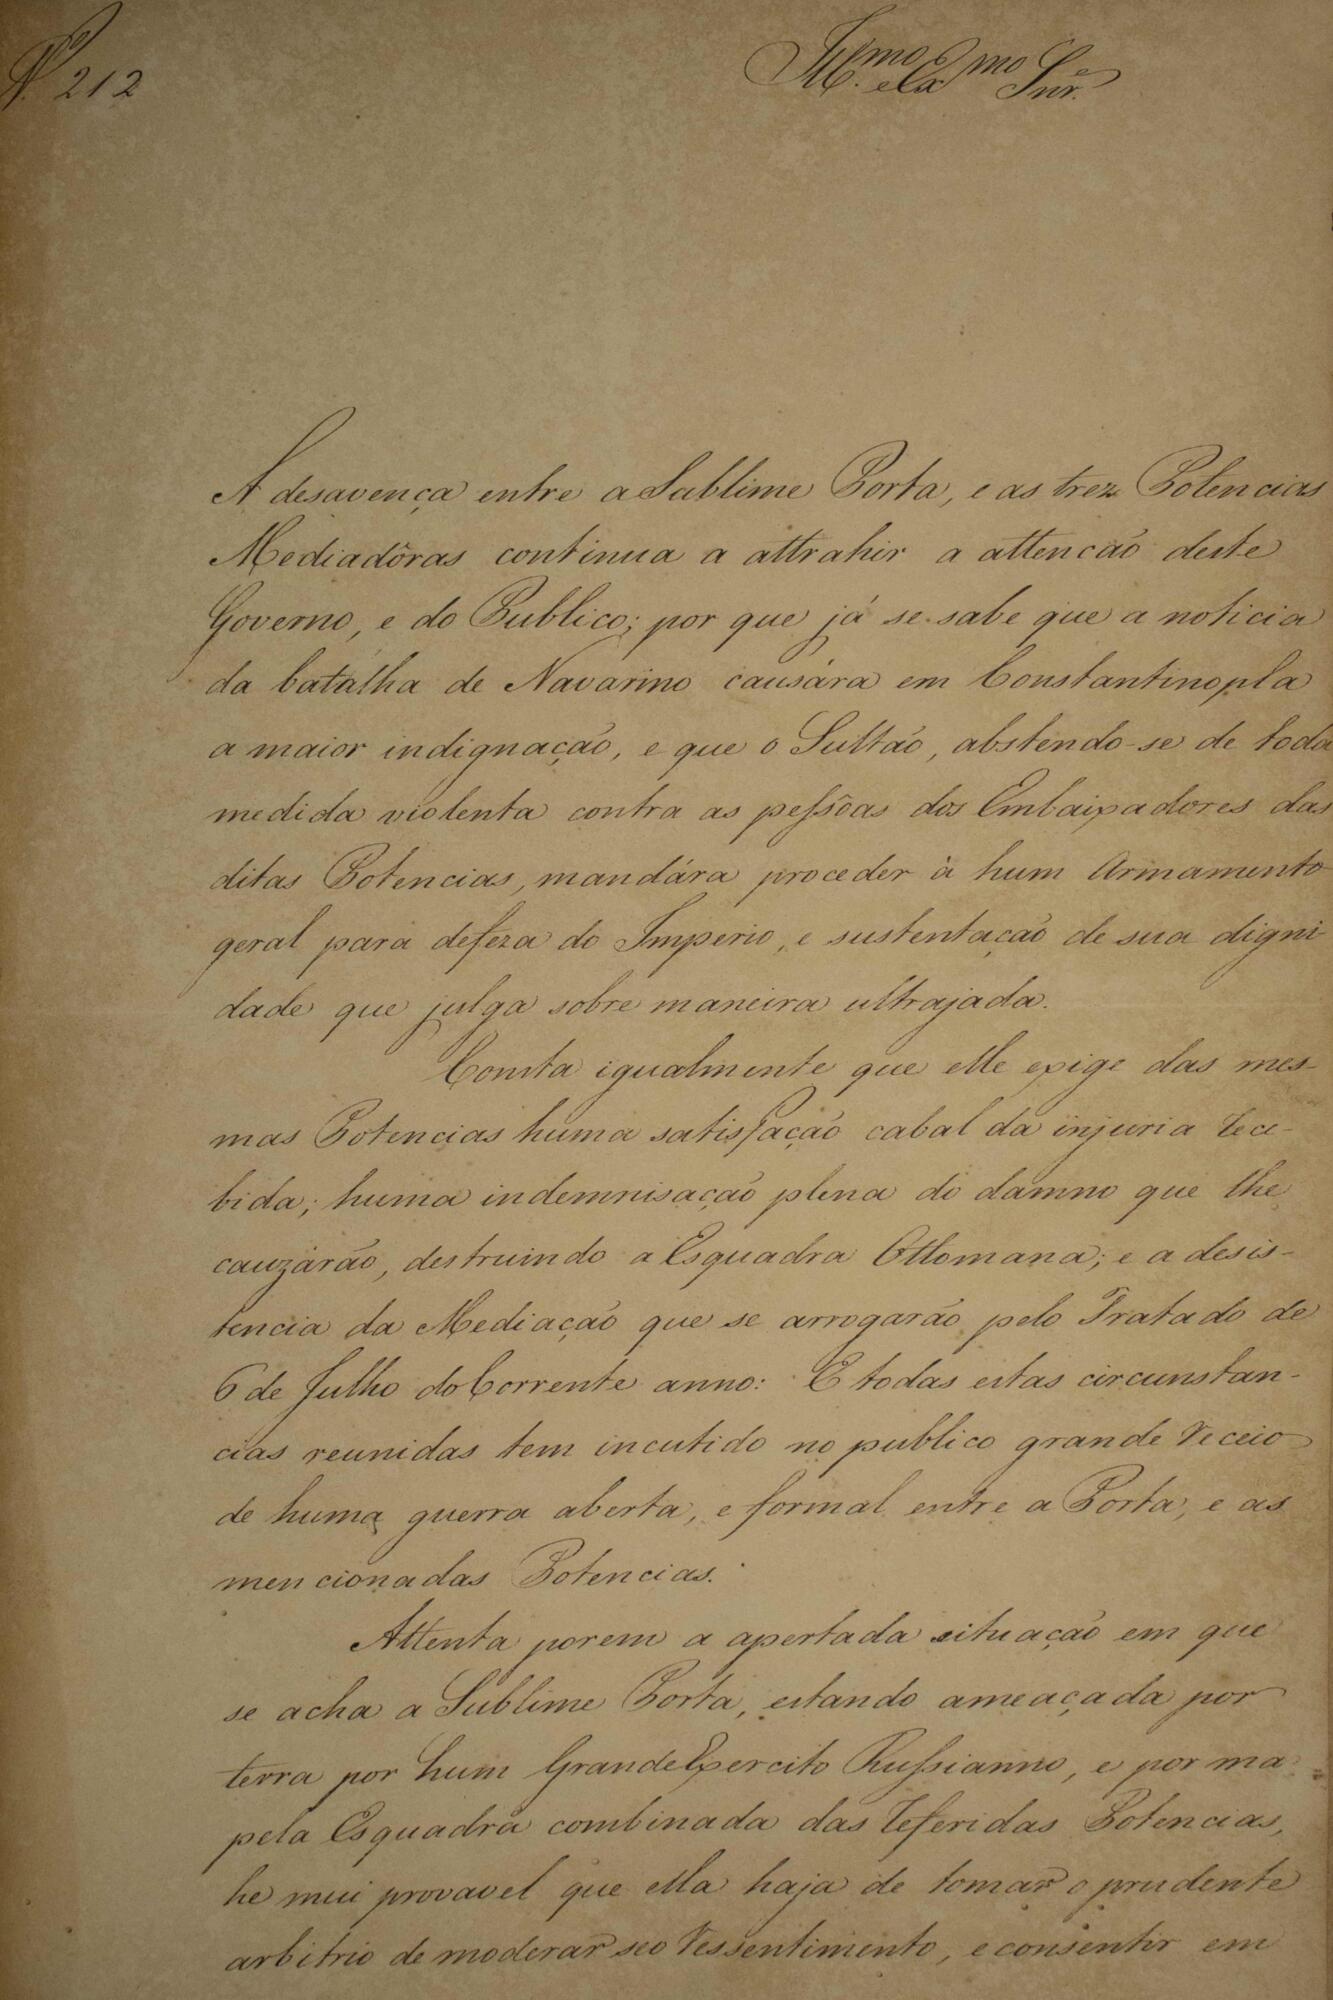 N.º 212
Ill.mo e Ex.mo Snr.
A desavença entre a Sublime Porta, e as trez Potencias
Mediadôras continua a attrahir a attencão deste
Governo, e do Publico; por que já se sabe que a noticia
da batalha de Navarino causára em Constantinopla
a maior indignação, e que o Sultão, abstendo-se de toda
medida violenta contra as pessôas dos Embaixadores das
ditas Potencias, mandára proceder à hum Armamento
geral para defeza do Imperio, e sustentação de sua digni-
dade que julga sobre maneira ultrajada.
Consta igualmente que elle exige das mes-
mas Potencias huma satisfação cabal da injuria rece-
bida; huma indemnisação plena do damno que lhe
cauzárão, destruindo a Esquadra Ottomana; e a desis-
tencia da Mediação que se arrogarão pelo Tratado de
6 de Julho do Corrente anno: E todas estas circunstan-
cias reunidas tem incutido no publico grande receio
de huma guerra aberta, e formal entre a Porta, e as
mencionadas Potencias.
Attenta porem a apertada situação em que
se acha a Sublime Porta, estando ameaçada por
terra por hum Grande Exercito Russianno, e por ma
pela Esquadra combinada das referidas Potencias,
he mui provavel que ella haja de tomar o prudente
arbitrio de moderar seo ressentimento, e consentir em